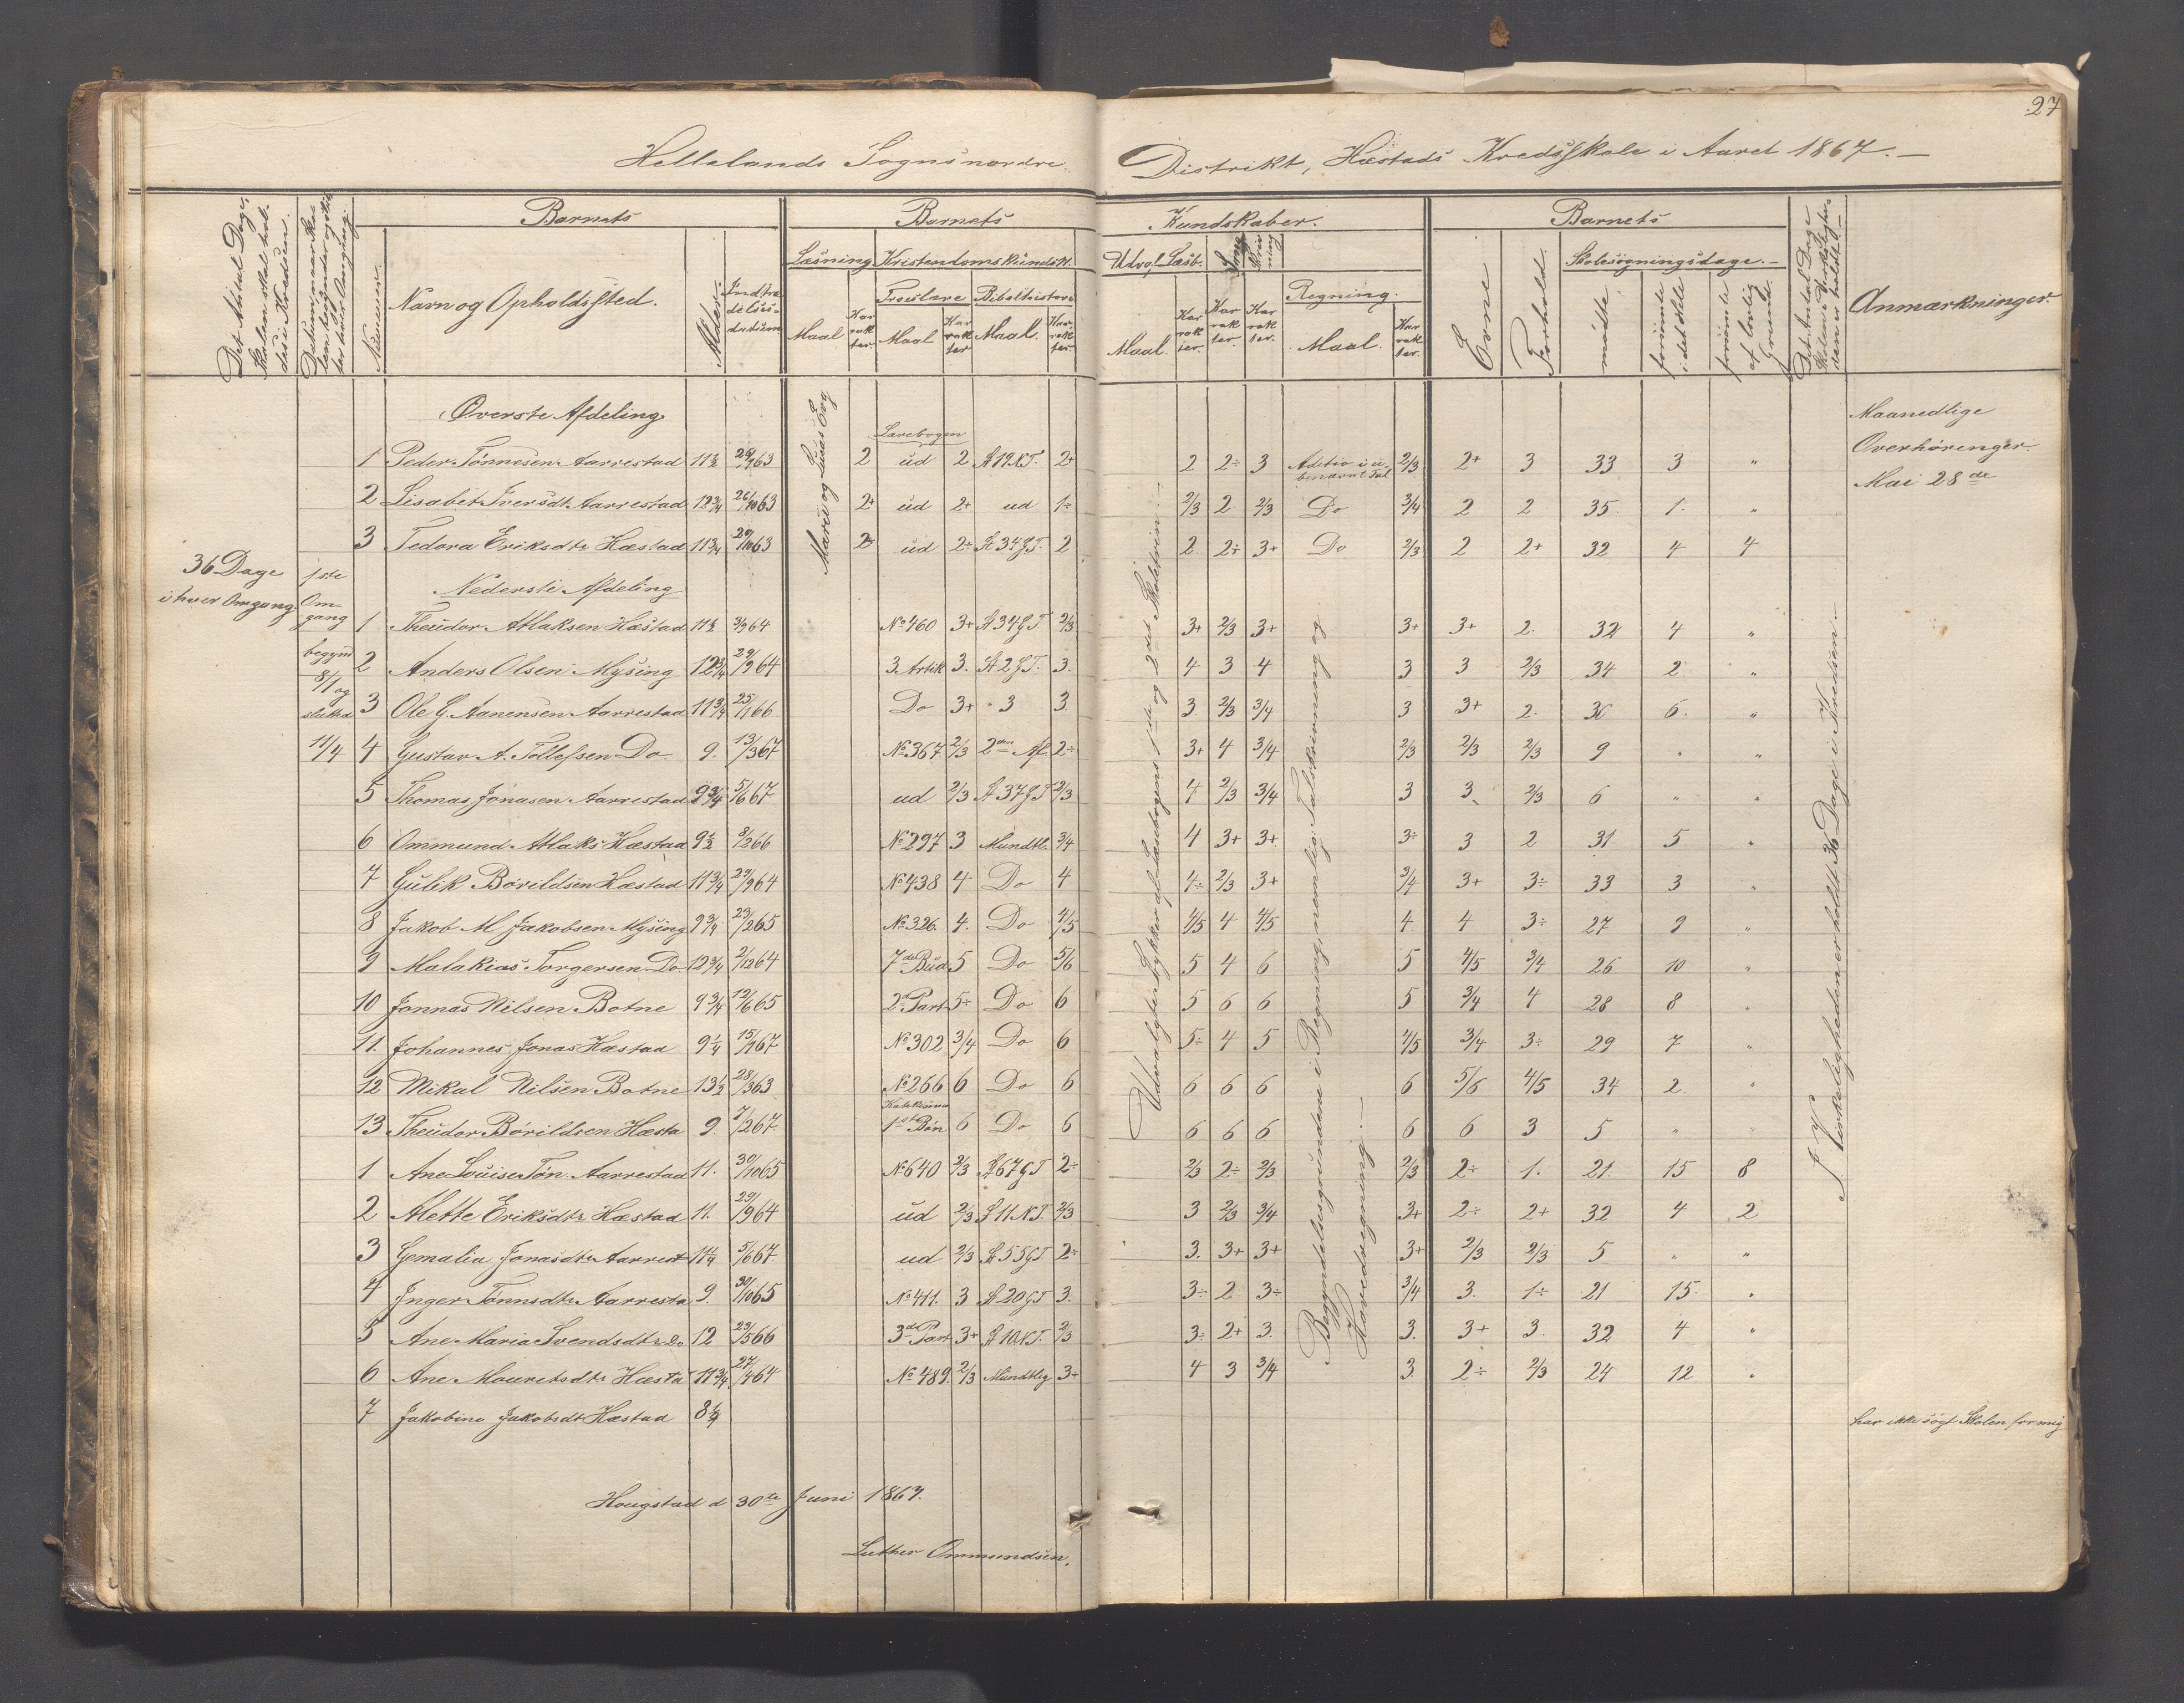 27
Hellelands Sognsnordre Distrikt, Hæstads Kredsskole i Aaret 1867.
Barnets Barnets Kundskaber. Barnets
Læsning Kristendomskundsk. Udval. Læsb. Skolesøgningsdage.
Nummer. Navn og Opholdssted. Alder. Indtrædelsesdatum Troeslære Bibelhistorie Regning. Evne Forhold. Anmærkninger.
Maal Karrakter. Maal Karrakter Maal. Karrakter Maal. Karrakter. Karrakter. Karrakter. Maal. Karrakter. mødte forsømte i det Hele forsømte af lovlig Grund
Øverste Afdeling Maanedlige
Lærebogen Overhøringer.
1 Peder Tønnesen Aarrestad 11½ 63 2 ud 2 St 19 N.T. 2+ 2 2÷ 3 2/3 2+ 3 33 3 "
Mai 28de
2 Lisabet Iversdt Aarrestad 12¾ 26/10 63 2+ ud 2+ ud 1÷ 2/3 2 2/3 Do 3/4 2 2 35 1. "
3 Tedora Eriksdtr Hæstad 11¾ 63 2+ ud 2÷ St 34 G.T. 2 2 2÷ 3+ Do 2/3 2 2+ 32 4 4
36 Dage i hver Omgang.
1ste Omgang begynd 8/1 og slutted 11/4
Nederste Afdeling
1 Theudor Atlaksen Hæstad 11½ 3/9 64 No 460 3+ St 34 G.T. 2/3 3+ 2/3 3+ 3+ 3+ 2. 32 4 "
2 Anders Olsen Mysing 12¾ 29/9 64 3 Artik 3. St 2 G.T. 3. 4 3 4 3 3 2/3 34 2 "
3 Ole G. Aanensen Aarrestad 11¾ 25/1 66 Do 3+ " 3 3. 3. 2/3 3/4 3 3+ 2. 30 6. "
4 Gustav A. Tollefsen Do 9. 13/3 67 No 367 2/3 2den Af. 2÷ 3+ 4 3/4 2/3 2/3 2/3 9 " "
5 Thomas Jonasen Aarrestad 9¾ 5/6 67 ud 2/3 St 37 G.T 2/3 4 2/3 3/4 3 3 2/3 6 " "
6 Ommund Atlaks Hæstad 9½ 8/2 66 No 297 3 Mundtl. 3/4 4 3+ 3+ 3÷ 3 2 31 5 "
7 Gulik Børildsen Hæstad 11¾ 29/9 64 No 438 4 Do 4 4÷ 2/3 3+ 3/4 3+ 3÷ 33 3 "
8 Jakob M Jakobsen Mysing 9¾ 23/2 65 No 326. 4. Do 4/5 4/5 4 4/5 4 4 3÷ 27 9 "
9 Malakias Torgersen Do 12¾ 2/12 64 7de Bud 5 Do 5/6 5 4 6 5 4/5 3/4 26 10 "
10 Jonnas Nilsen Botne 9¾ 12/6 65 2d Part 5÷ Do 6 5 6 6 5 3/4 4 28 8 "
11. Johannes Jonas Hæstad 9¼ 67 No 302 3/4 Do 6 5÷ 4 5 4/5 3/4 3÷ 29 7 "
12 Mikal Nilsen Botne 13½ 28/3 63 No 266 6 Do 6 6 6 6 6 5/6 4/5 34 2. "
13 Theudor Børildsen Hæsta 9. 7/2 67. 1ste Bøn 6 Do 6 6 6 6 6 6 3 5 " "
1 Ane Louise Tøn. Aarrestad 11. 30/10 65 No 640 2/3 St 67 G T 2÷ 2/3 2÷ 2/3 2/3 2÷ 1. 21. 15 8
2 Alette Eriksdtr Hæstad 11. 29/9 64 ud 2/3 St 11 N.T. 2/3 3 2/3 3/4 3+ 2÷ 2+ 32 4 2
3 Gemalia Jonasdtr Aarrest 11¼ 5/6 67. ud 2/3 St 55 G T 2÷ 3. 3+ 3+ 3+ 2/3 2/3 5 " "
4 Inger Tønnsdtr Aarresta 9. 30/10 65 No 411. 3 St 20 G T 3. 3÷ 2 3÷ 3/4 3. 1÷ 21 15. "
5 Ane Maria Svendsdtr Do 12 23/5 66 3d Part 3+ St 10 N.T. 2/3 3÷ 2+ 3. 3. 3+ 3. 32 4 "
6 Ane Mouritsdtr Hæsta 11¾ 27/4 64 No 489. 2/3 Mundtlig 3+ 4 3 3/4 3. 2÷ 2/3 24 12 "
7 Jakobine Jakobsdt Hæstad 8¼ har ikke søgt Skolen for mig
Udvalgte Stykker af Læsebogens 1ste og 2det Skoletrin
Begyndelsesgrundene i Regning, nemlig: Talskrivning og Hovedregning.
I Virkeligheden er holdt 36 Dage i Kredsen.
Hougstad d 30te Juni 1867.
Luther Ommundsen.